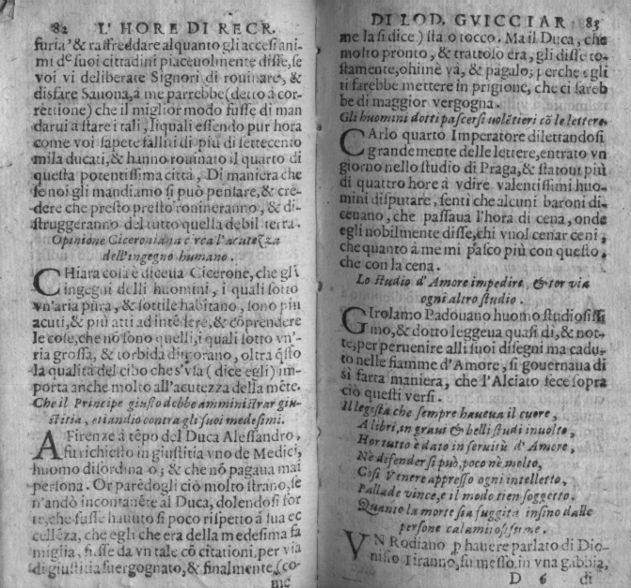 82 L'HORE DI RECR.
furia, & raffreddare alquanto gli accesi ani-
mi de' suoi cittadini piaceuolmente disse, se
voi vi deliberate Signori di rouinare, &
disfare Sauona, à me parrebbe (detto à cor-
rettione) che il miglior modo fusse di man
darui à stare i tali, li quali essendo pur hora
come voi sapete falliti di più di settecento
mila ducati, & hanno rouinato il quarto di
questa potentissima città, Di maniera che
se noi gli mandiamo si può pensare, & cre-
dere che presto presto rouineranno, & di-
struggeranno del tutto quella debil terra.
Opinione Ciceroniana circa l'acutezza
dell'ingegno humano.
CHiara cosa è diceua Cicerone, che gli
ingegni delli huomini, i quali sotto
vn'aria pura, & sottile habitano, sono piu
acuti, & più atti ad intẽdere, & cõprendere
le cose, che nõ sono quelli, i quali sotto vn'a-
ria grossa, & torbida dimorano, oltra q̃sto
la qualità del cibo che s'vsa (dice egli) im-
porta anche molto all'acutezza della mẽte.
Che il Principe giusto debbe amministrar giu-
stitia, etiandio contra gli suoi medesimi.
A Firenze à tẽpo del Duca Alessandro,
fu richiesto in giustitia vno de Medici,
huomo disordinato; & che nõ pagaua mai
persona. Or parẽdogli ciò molto strano, se
n'andò incontanẽte al Duca, dolendosi for
te, che fusse hauuto si poco rispetto à sua ec
cellẽza, che egli che era della medesima fa
miglia, fusse da vn tale cõ citationi, per via
di giustitia suergognato, & finalmente (co-
me
DI LOD. GVICCIAR 83
me la si dice) sta o tocco. Ma il Duca, che
molto pronto, & trattolo era, gli disse to-
stamente, ohime và, & pagalo; perche egli
ti farebbe mettere in prigione, che ci sareb
be di maggior vergogna.
Gli huomini dotti pascersi uolẽtieri cõ le lettere.
CArlo quarto Imperatore dilettandosi
grandemente delle lettere, entrato vn
giorno nello studio di Praga, & statoui più
di quattro hore à vdire valentissimi huo-
mini disputare, senti che alcuni baroni di-
ceuano, che passaua l'hora di cena, onde
egli nobilmente disse, chi vuol cenar ceni,
che quanto à me mi pasco più con questo,
che con la cena.
Lo studio d'Amore impedire, & tor via
ogni altro studio.
GIrolamo Padouano huomo studiosissi
mo, & dotto leggeua quasi di, & not-
te, per peruenire alli suoi disegni ma cadu-
to nelle fiamme d'Amore, si gouernaua di
si fatta maniera, che l'Alciato fece sopra
ciò questi versi.
Il legista che sempre haueua il cuore,
A libri, in graui & belli studi inuolto,
Hor tutto è dato in seruirù d'Amore,
Nè difender si può, poco nè molto,
Cosi Venere appresso ogni intelletto,
Pallade vince, e il modo tien soggetto.
Quanto la morte sia fuggita insino dalle
persone calamitosissime.
VN Rodiano p hauere parlato di Dio-
nisio Tiranno, fu messo in vna gabbia,
D 6 di